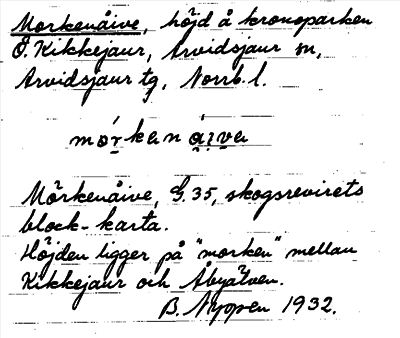 Morkenåive, höjd å kronoparken
Ö. Kikkejaur, Arvidsjaur sn,
Arvidsjaur tg, Norrb. l.
mórkən ạ́i̯və
Mörkenåive, G. 35, skogsrevirets
block-karta.
Höjden ligger på "morken" mellan
Kikkejaur och Åbyälven.
B. Nyppen 1932.